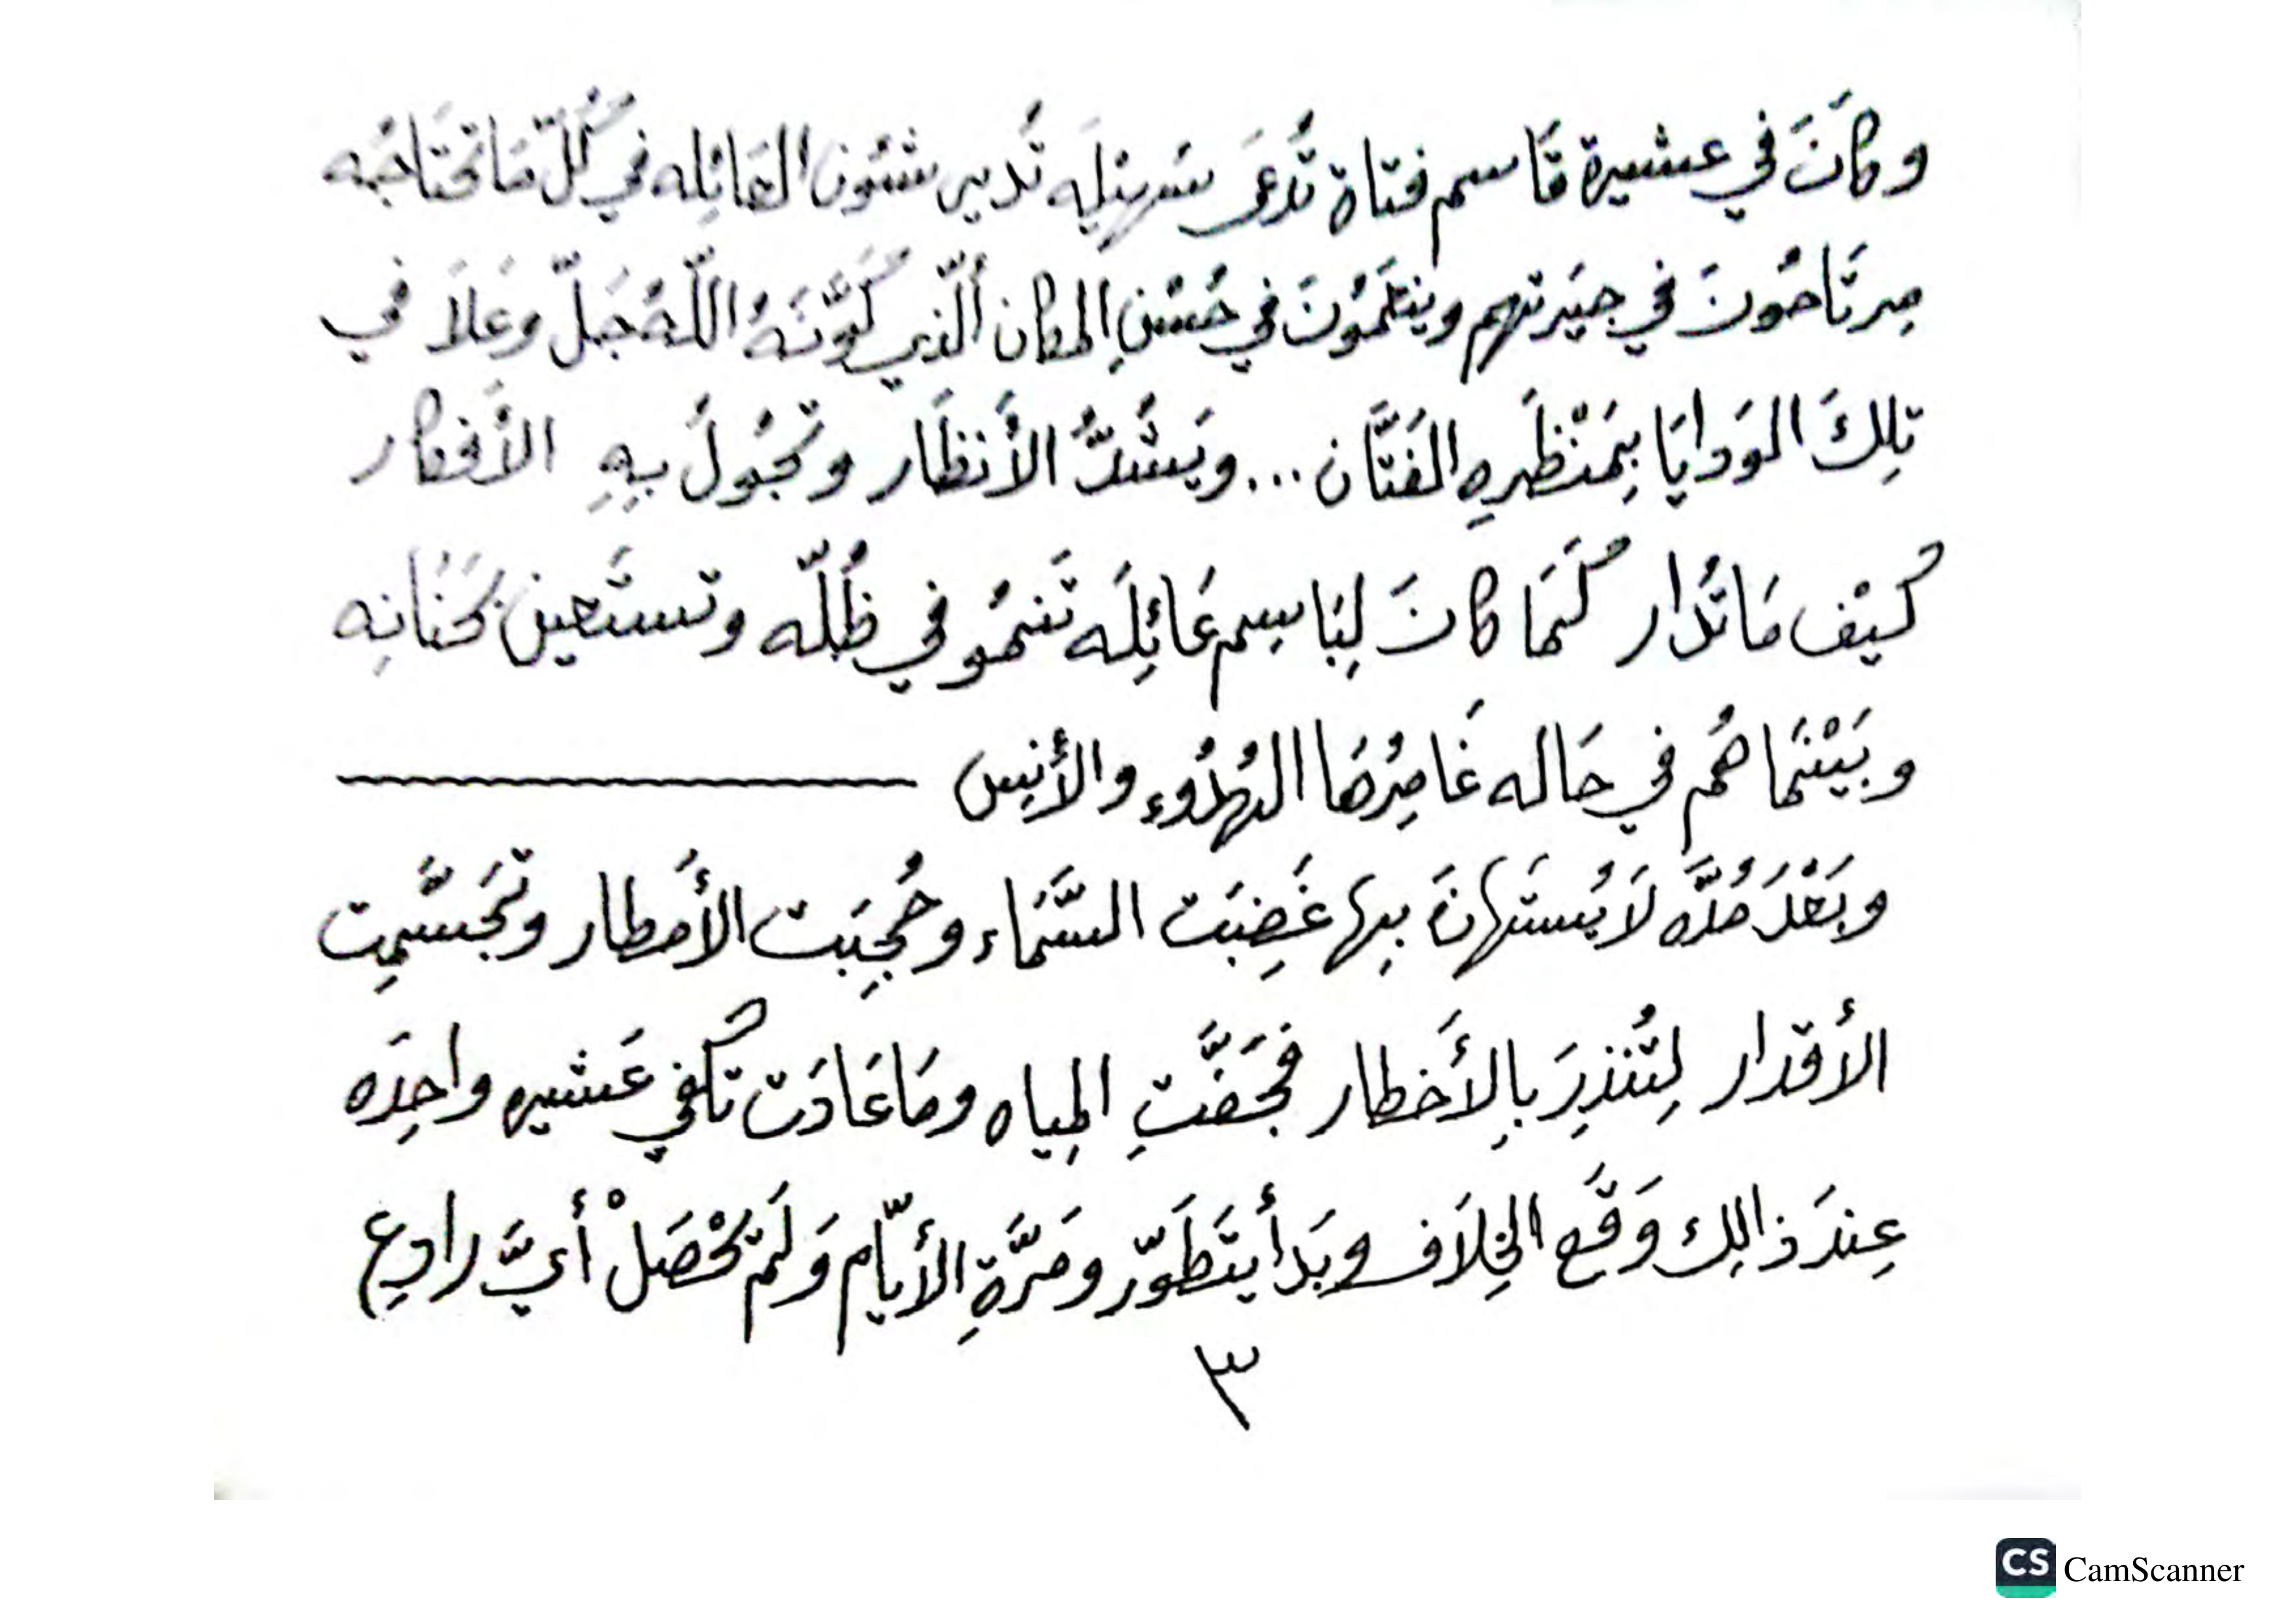 وكَانَ في عشيرة قَاسم فتاة تُدعَى سَهيلِه تُدير شئون العَائِله في كُلّ مَا تحتَاجُه
مِرتَاحُونَ في جيَرتهم وينعَمُونَ في حُسْنِ المكان الّذي كَوَّنَهُ اللّهُ جَلّ وعَلاَ في
تِلكَ الـوَدايَا بِمَنْظَرِهِ الفَتَّان ... ويَشُدُّ الأنظَار وتجُولُ بِهِ الأفكار
كَيْف مَا تُدار كَمَا كانَ لِبَاسِم عَائِلَه تَنمُو في ظُلّه وتستَعين بحَنَانِه
وبَيْنَمَا هُم في حَاله غَامِرُهَا الهُدُوء والأنِس
وبَعْدَ مُدَّه لاَ يُستَهانَ بِها غَضِبَت السَّمَاء وحُجِبَت الأمطار وتجَسَّمِت
الأقدار لِتُنذِرَ بِالأَخطار فَجَفَّتِ المِياه ومَا عَادَت تكفي عَشيره واحِدَه
عِندَ ذالِك وَقَع الخِلاَف وبَدأ يَتَطَوّر ومَرَّةِ الأيّام وَلَم تحْصَلْ أيَّ رادِع
٣
CS CamScanner